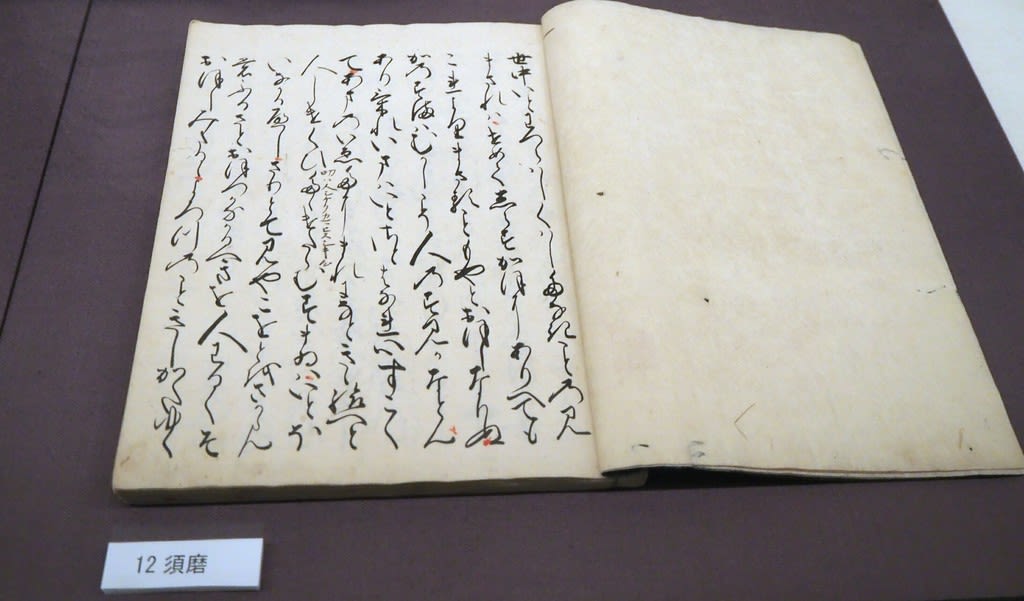 世中いとわつらはしくはしたなきことのみ
まされはせめてしらすかほにありへても
これよりまさることもやとおほしなりぬ
かのすまはむかしこそ人のすみかなとも
ありけれいまはいとさとはなれ心すこく
てあまのいへたにまれになときゝ給へと
人しけくひたゝけたらむすまゐはいとほ
いなかるへしさりとてみやこをとをさからん
もふるさとおほつかなかるへきを人わるくそ
おほしみたるゝよろつのこときしかたゆく
12 須磨